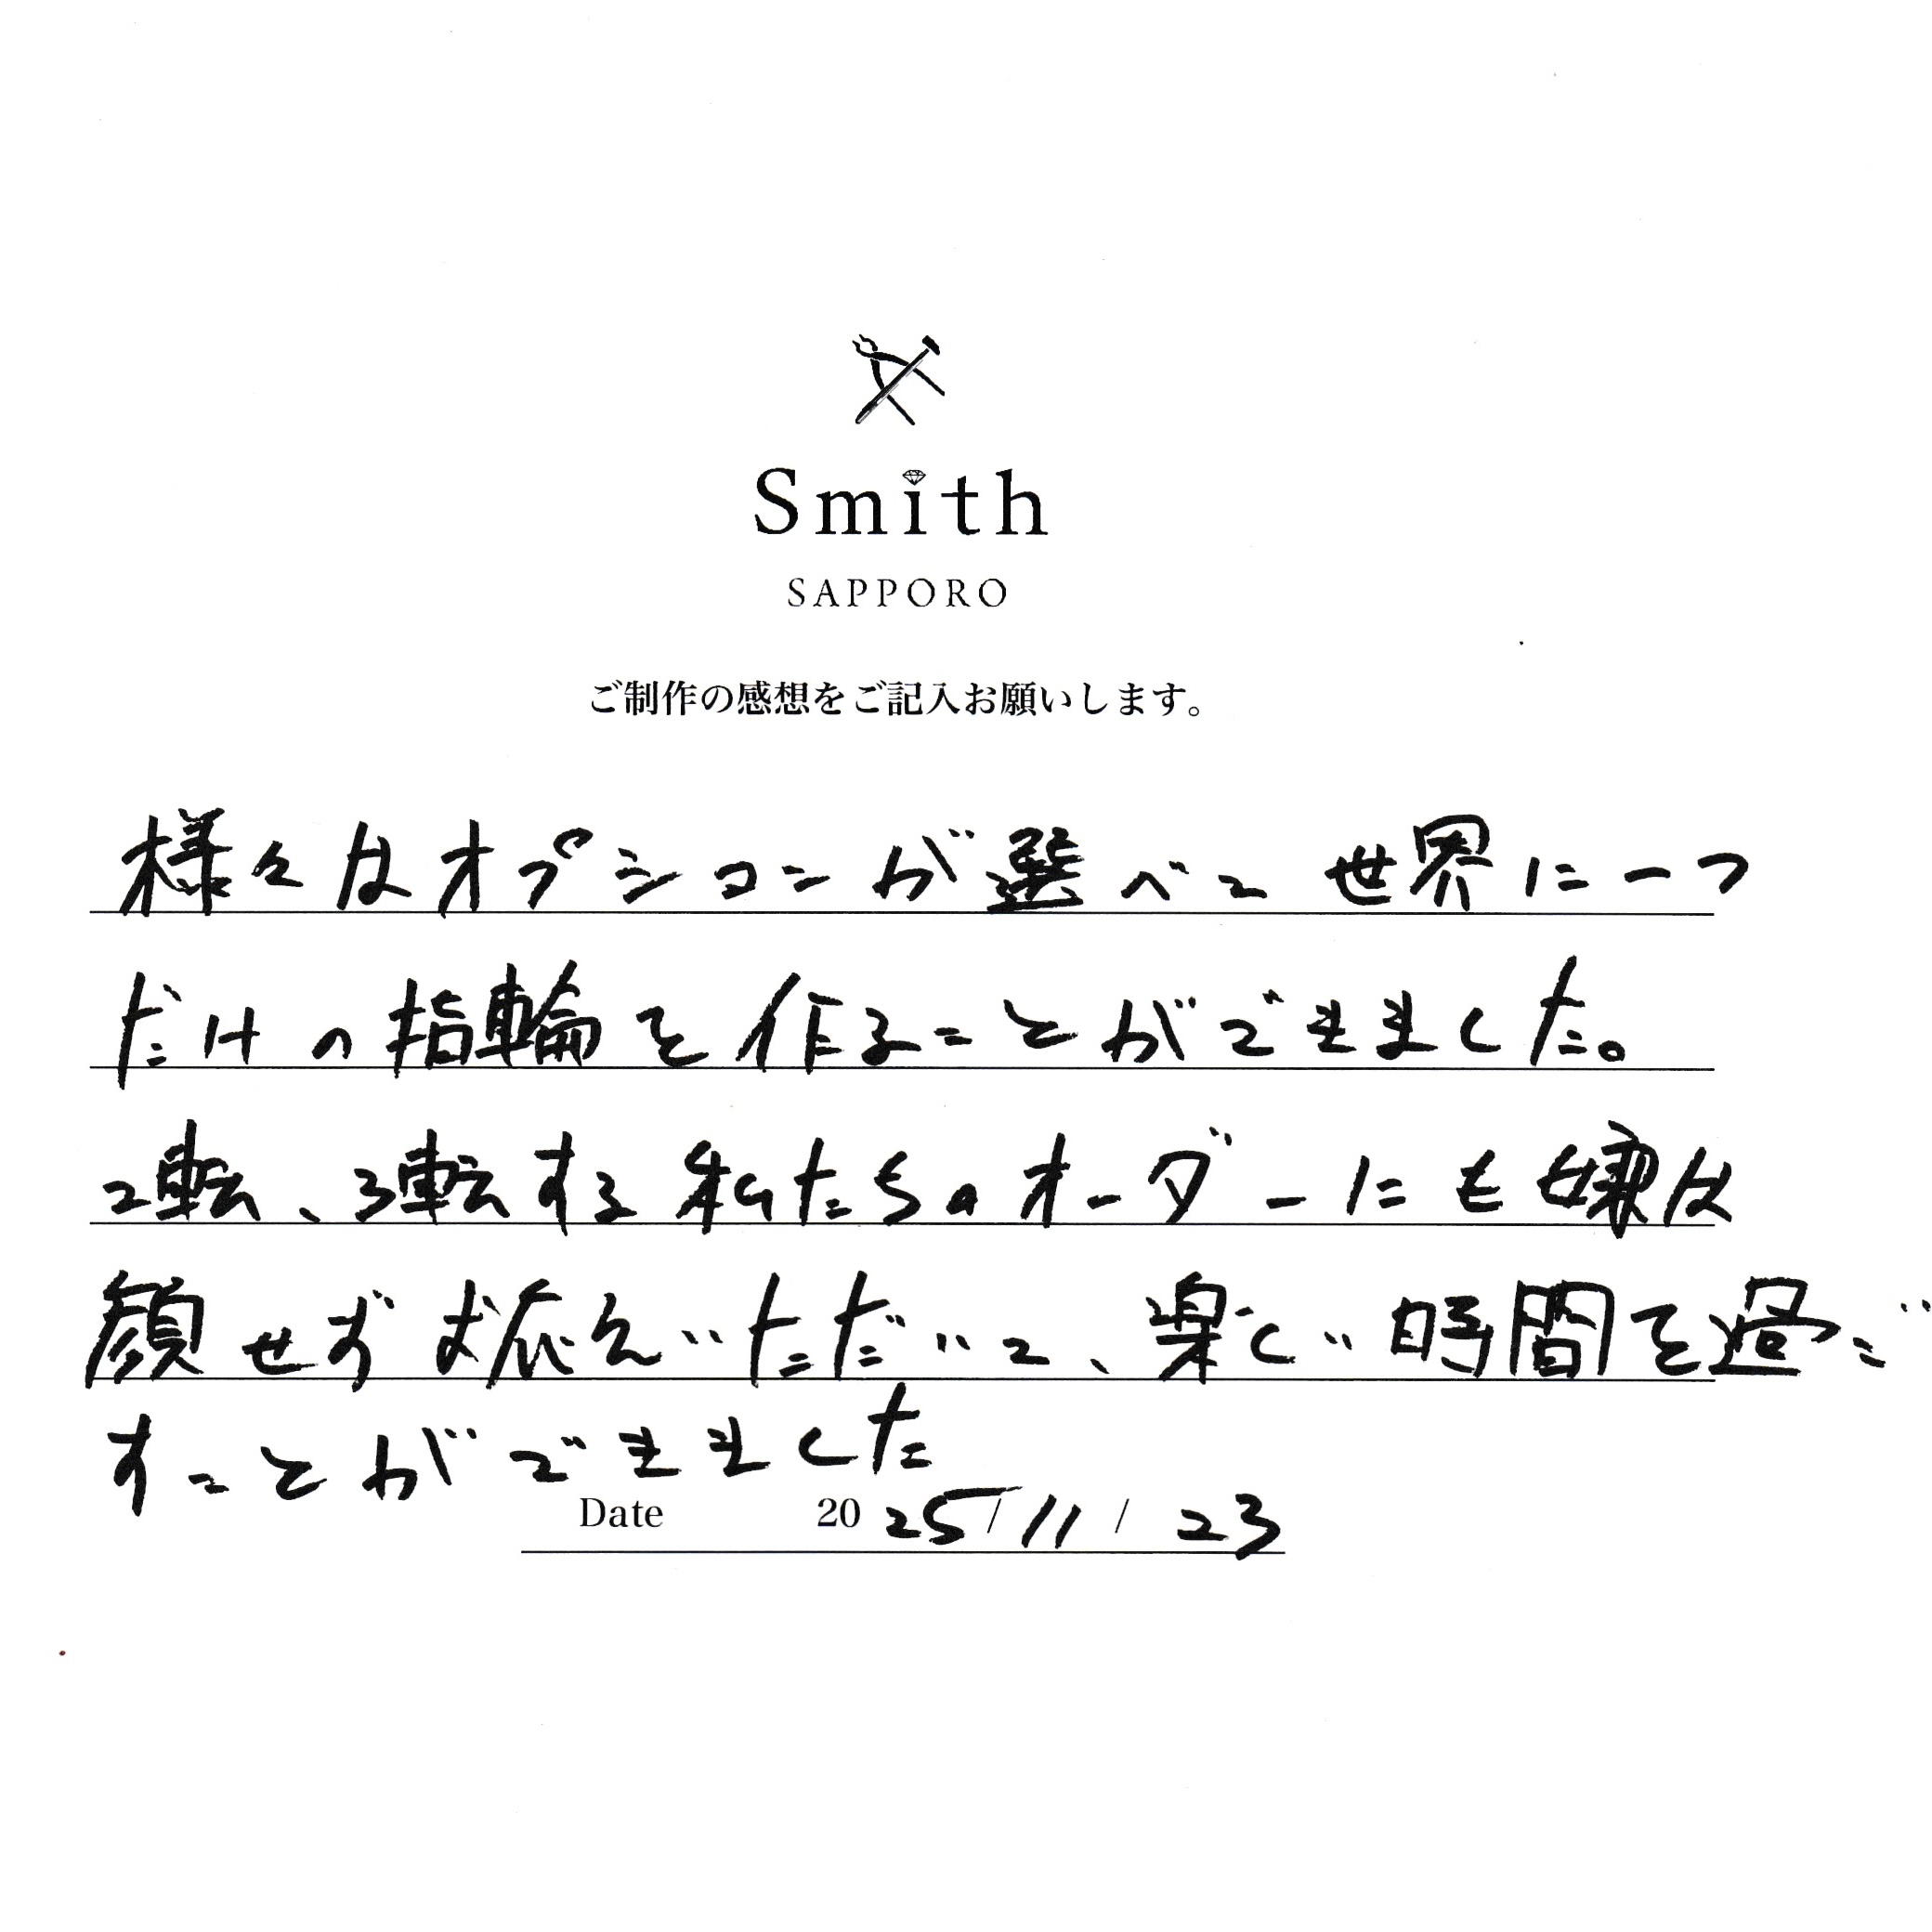 Smith
SAPPORO
ご制作の感想をご記入お願いします。
様々なオプションが選べて世界に一つ
だけの指輪を作ることができました。
2転、3転する私たちのオーダーにも嫌な
顔せず対応いただいて、楽しい時間を過ご
すことができました
Date 2025/11/23